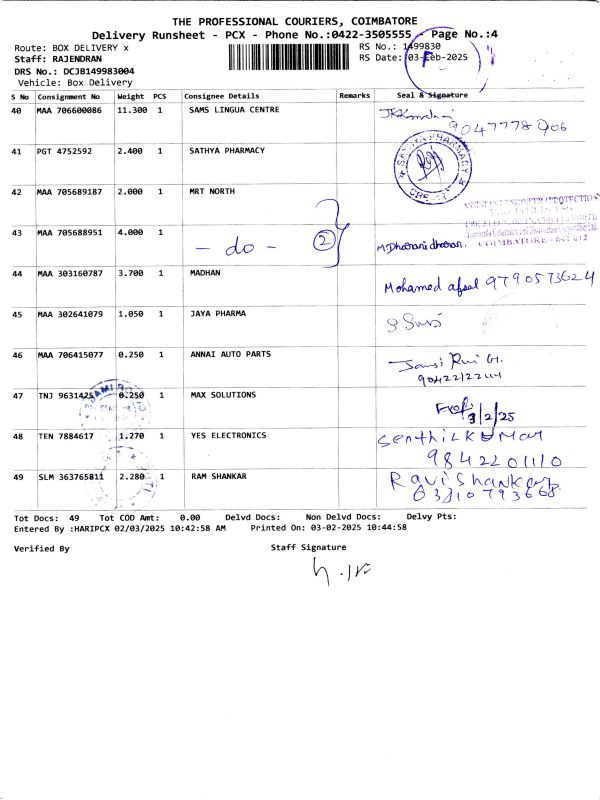 THE PROFESSIONAL COURIERS, COIMBATORE
Delivery Runsheet - PCX - Phone No.:0422-3505555 Page No.:4
Route: BOX DELIVERY x RS No.: 1499830
Staff: RAJENDRAN RS Date: 03-Feb-2025
DRS No.: DCJB149983004
Vehicle: Box Delivery
S No Consignment No Weight PCS Consignee Details Remarks Seal & Signature
40 MAA 706600086 11.300 1 SAMS LINGUA CENTRE
9047778906
41 PGT 4752592 2.400 1 SATHYA PHARMACY
SATHYA PHARMACY
42 MAA 705689187 2.000 1 MRT NORTH
43 MAA 705688951 4.000 1 - do - 2 M.Dharani dharan.
COIMBATORE - 641 012
44 MAA 303160787 3.700 1 MADHAN Mohamed afsal 9790573624
45 MAA 302641079 1.050 1 JAYA PHARMA
46 MAA 706415077 0.250 1 ANNAI AUTO PARTS
47 TNJ 9631425 0.250 1 MAX SOLUTIONS 3/2/25
48 TEN 7884617 1.270 1 YES ELECTRONICS Senthilkumar
9842201110
49 SLM 363765811 2.280 1 RAM SHANKAR Ravishankar
Tot Docs: 49 Tot COD Amt: 0.00 Delvd Docs: Non Delvd Docs: Delvy Pts:
Entered By :HARIPCX 02/03/2025 10:42:58 AM Printed On: 03-02-2025 10:44:58
Verified By Staff Signature